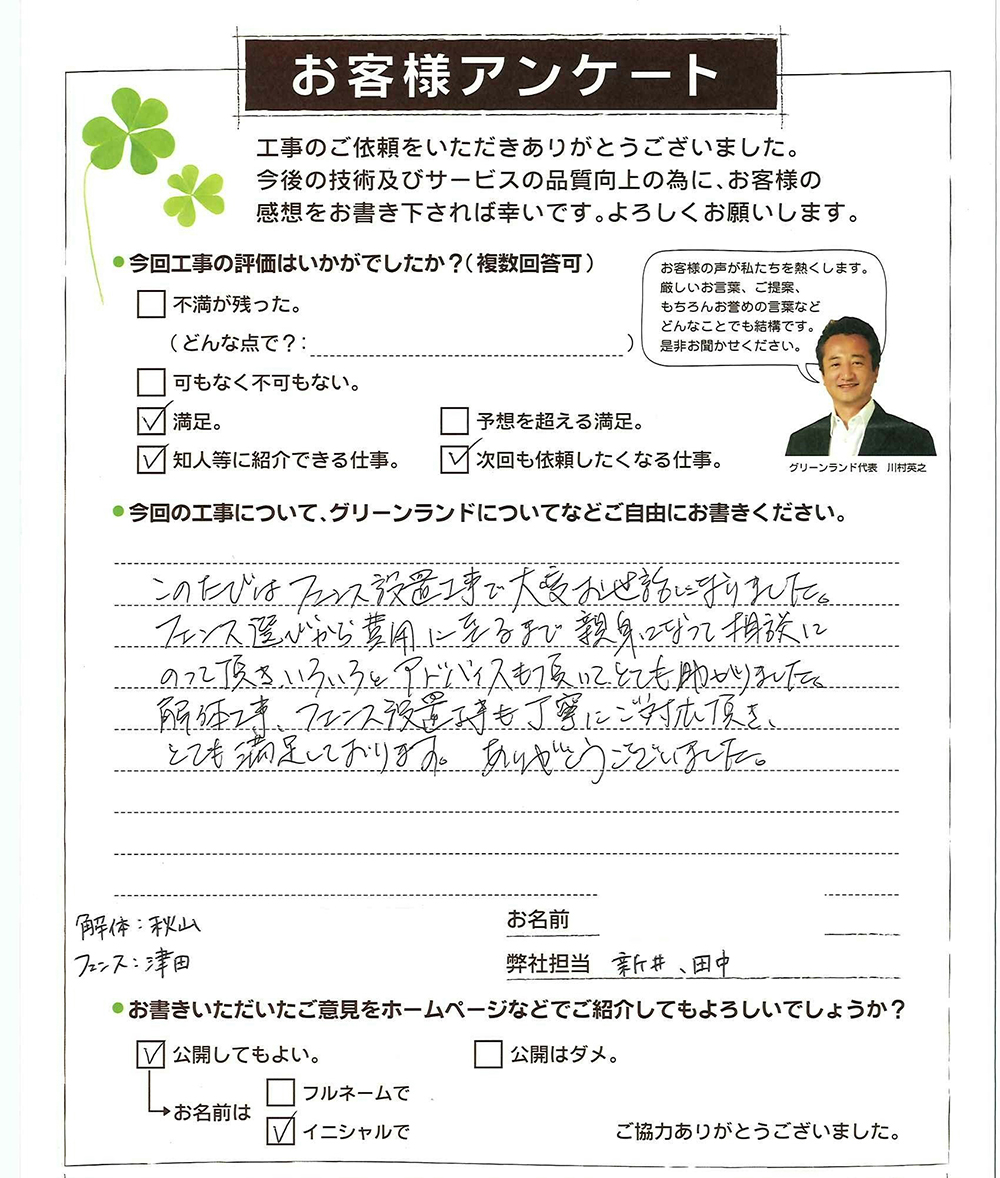 お客様アンケート
工事のご依頼をいただきありがとうございました。
今後の技術及びサービスの品質向上の為に、お客様の
感想をお書き下されば幸いです。よろしくお願いします。
●今回工事の評価はいかがでしたか？（複数回答可）
お客様の声が私たちを熱くします。
厳しいお言葉、ご提案、
もちろんお誉めの言葉など
どんなことでも結構です。
是非お聞かせください。
グリーンランド代表 川村英之
□ 不満が残った。
（どんな点で？：　　　）
□ 可もなく不可もない。
☑ 満足。 □ 予想を超える満足。
☑ 知人等に紹介できる仕事。 ☑ 次回も依頼したくなる仕事。
●今回の工事について、グリーンランドについてなどご自由にお書きください。
このたびはフェンス設置工事で大変お世話になりました。
フェンス選びから費用に至るまで親身になって相談に
のって頂き、いろいろとアドバイスも頂いてとても助かりました。
解体工事、フェンス設置工事も丁寧にご対応頂き、
とても満足しております。ありがとうございました。
解体：秋山
フェンス：津田
お名前
弊社担当 新井、田中
●お書きいただいたご意見をホームページなどでご紹介してもよろしいでしょうか？
☑ 公開してもよい。 □ 公開はダメ。
お名前は □ フルネームで
☑ イニシャルで
ご協力ありがとうございました。